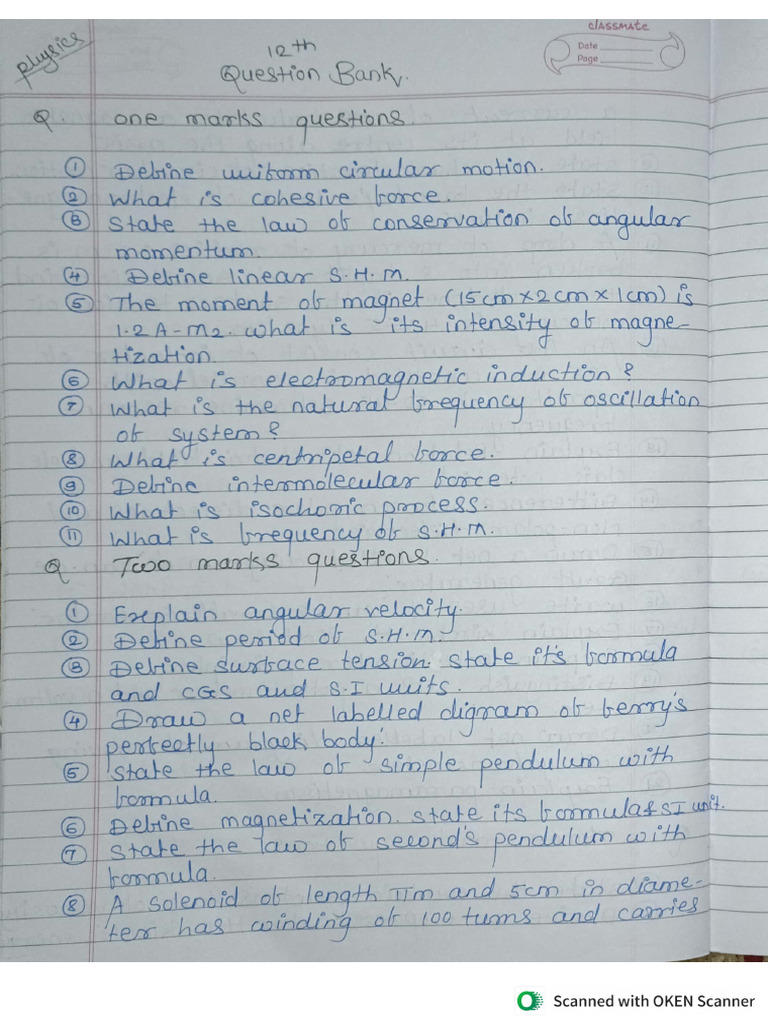 classmate
Date
Page
Physics
12th
Question Bank.
Q. one marks questions.
① Define uniform circular motion.
② What is cohesive force.
③ State the law of conservation of angular
momentum.
④ Define linear S.H.M.
⑤ The moment of magnet (15cm×2cm×1cm) is
1.2 A-m2. what is its intensity of magne-
tization.
⑥ What is electromagnetic induction?
⑦ What is the natural frequency of oscillation
of system?
⑧ What is centripetal force.
⑨ Define intermolecular force.
⑩ What is isochoric process.
⑪ What is frequency of S.H.M.
Q Two marks questions.
① Explain angular velocity.
② Define period of S.H.M.
③ Define surface tension. state it's formula
and CGS and S.I units.
④ Draw a net labelled digram of ferry's
perfectly black body.
⑤ State the law of simple pendulum with
formula.
⑥ Define magnetization. state its formula & SI unit.
⑦ State the law of second's pendulum with
formula.
⑧ A solenoid of length πm and 5cm in diame-
ter has winding of 100 turns and carries
Scanned with OKEN Scanner